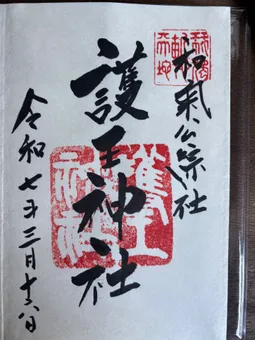 和気公宗社
護王神社
令和七年三月十六日
護王
神社